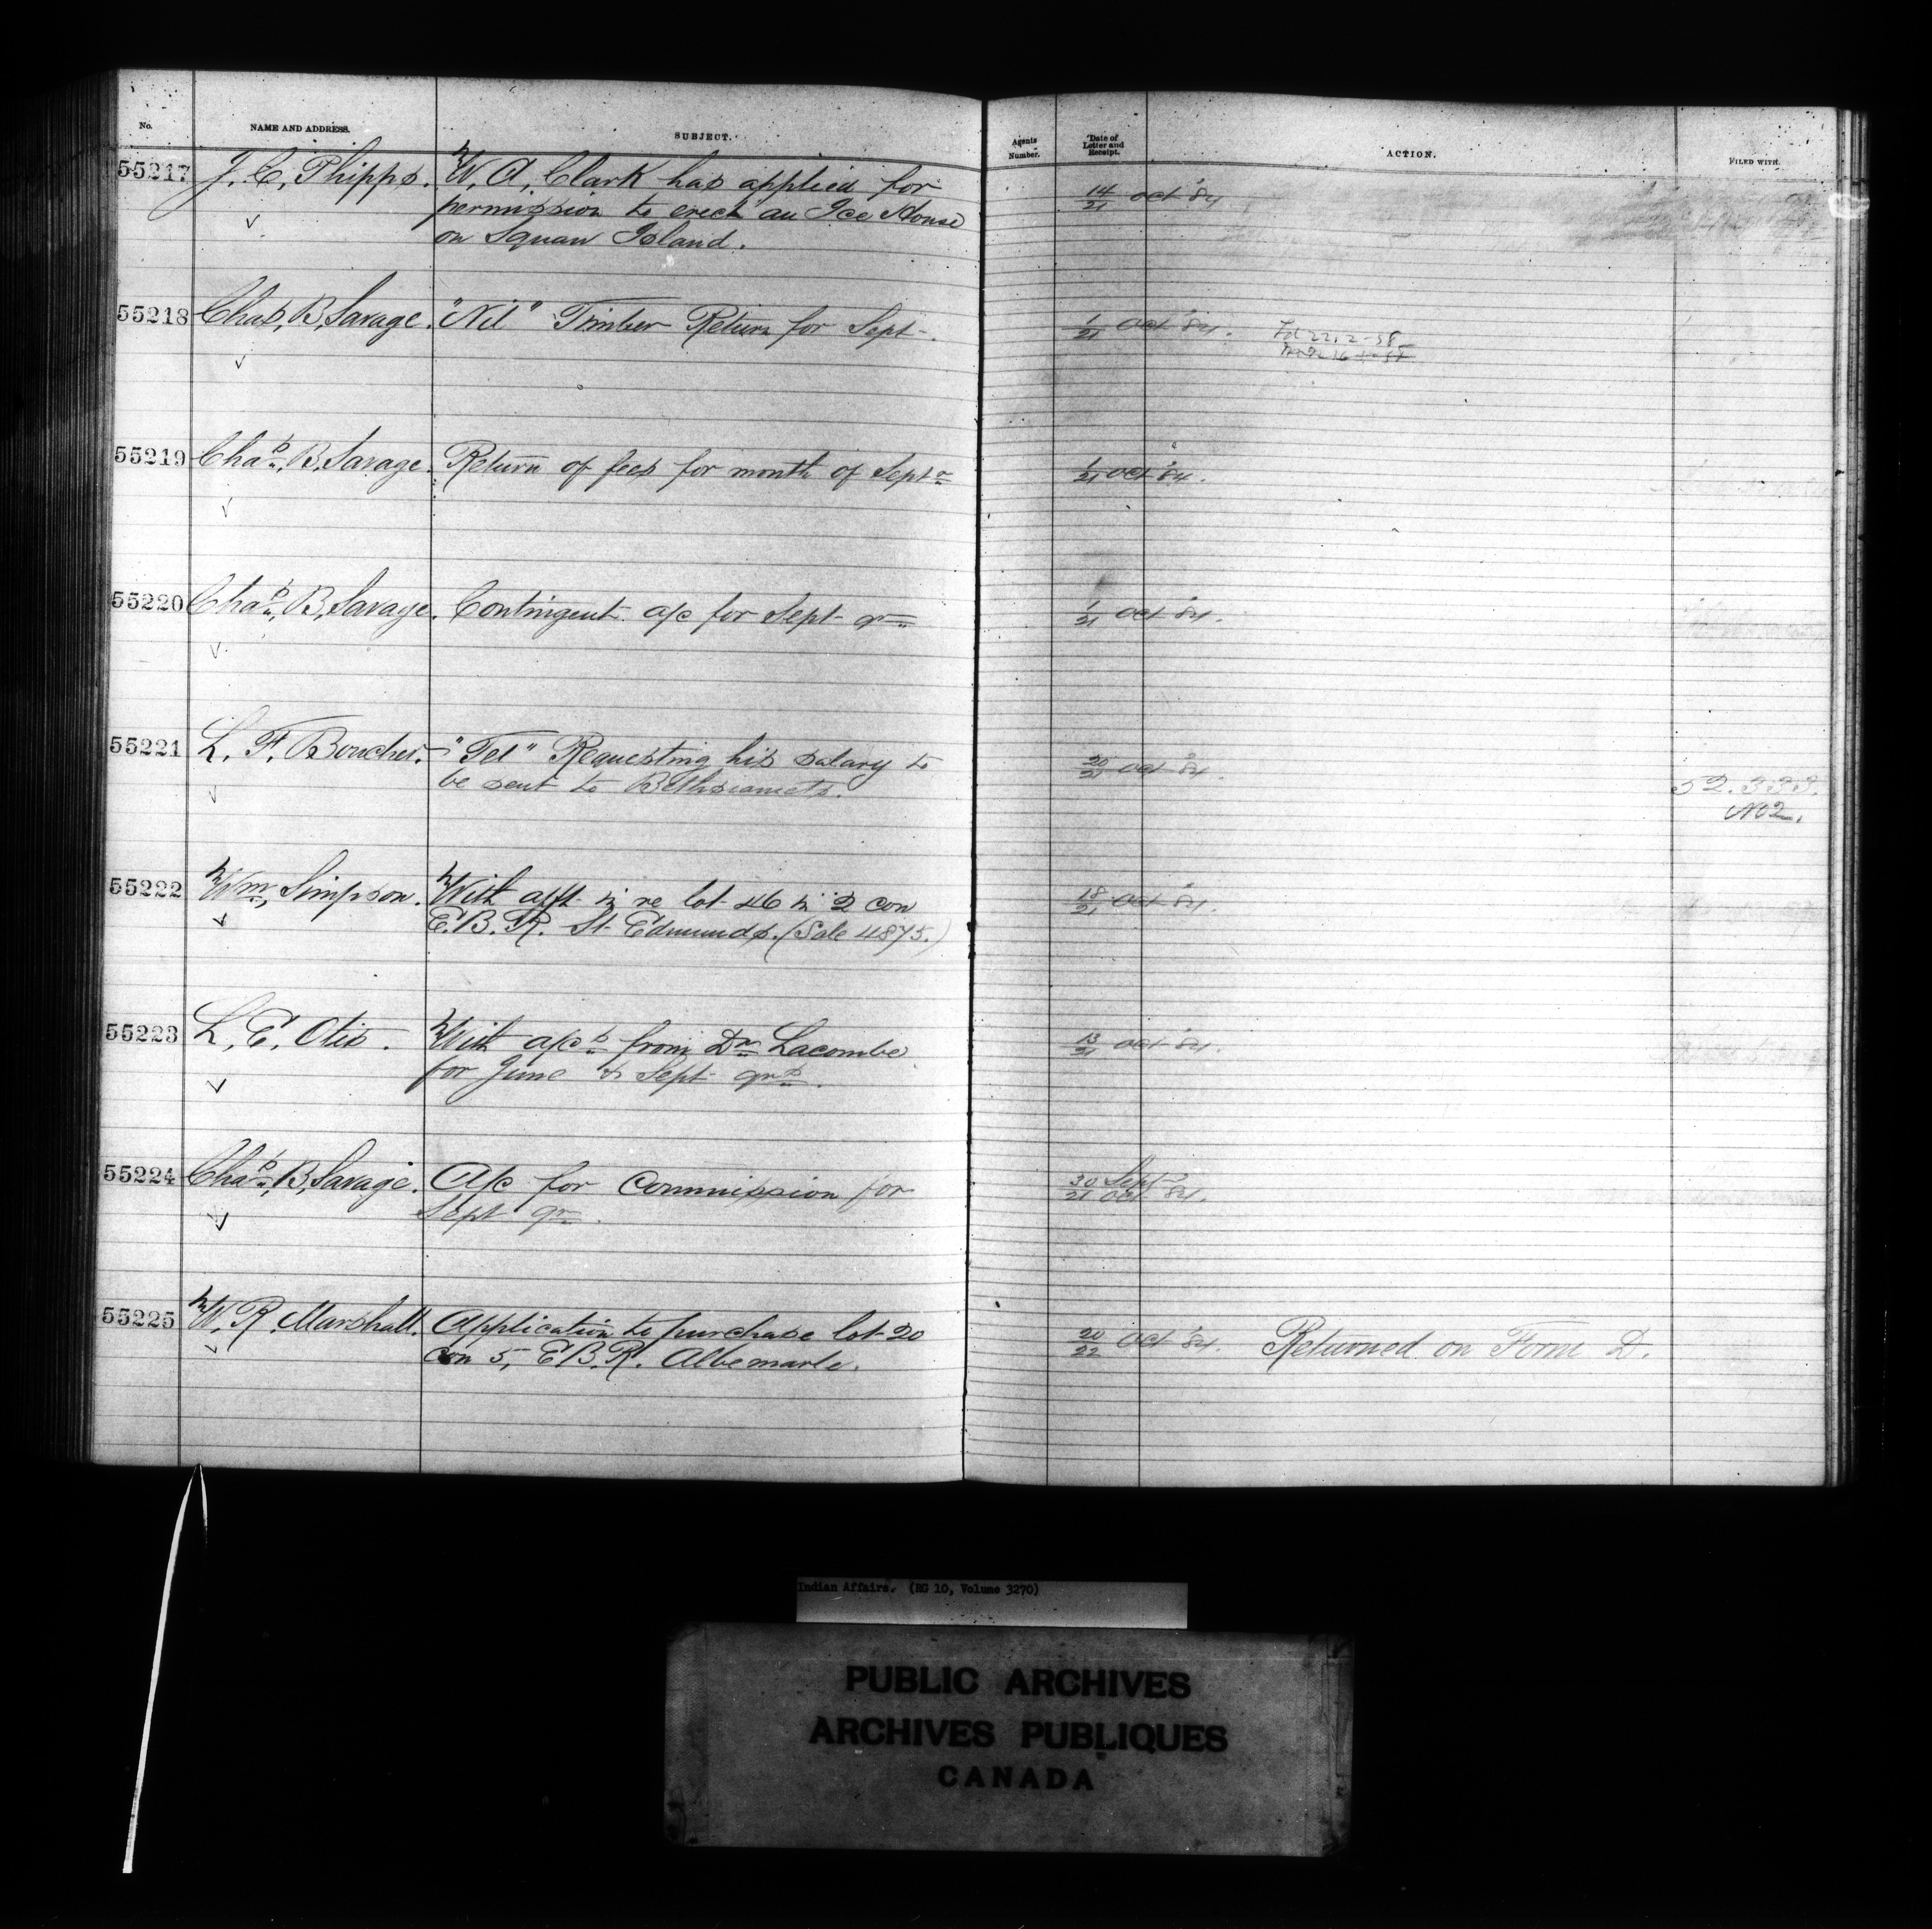 No.
NAME AND ADDRESS.
SUBJECT.
Agents Number.
Date of Letter and Receipt.
ACTION.
FILED WITH.
55217 J. C. Phipps. W. A. Clark has applied for 14/21 Oct '84
permission to erect an Ice House
on Squaw Island.
55218 Chas. B. Savage. "Nil" Timber Return for Sept. 1/21 Oct '84.
55219 Chas. B. Savage. Return of fees for month of Septr 1/21 Oct '84.
55220 Chas. B. Savage. Contingent a/c for Sept qr 1/21 Oct '84.
55221 L. F. Boucher. "Tel" Requesting his salary to 20/21 Oct '84.
be sent to Bethsiamits.
52.333.
No 2.
55222 Wm. Simpson. With afft in re lot 46 in 2 con 18/21 Oct '84.
E.B.R. St. Edmunds. (Sale 4875.)
55223 L. E. Otis. With a/cs from Dr Lacombe 13/21 Oct '84.
for June & Sept qrs.
55224 Chas. B. Savage. A/c for Commission for 30 Sept / 21 Oct '84.
Sept qr.
55225 W. R. Marshall. Application to purchase lot 20 20/22 Oct '84. Returned on Form D.
Con 5, E.B.R. Albemarle.
Indian Affairs. (RG 10, Volume 3270)
PUBLIC ARCHIVES
ARCHIVES PUBLIQUES
CANADA